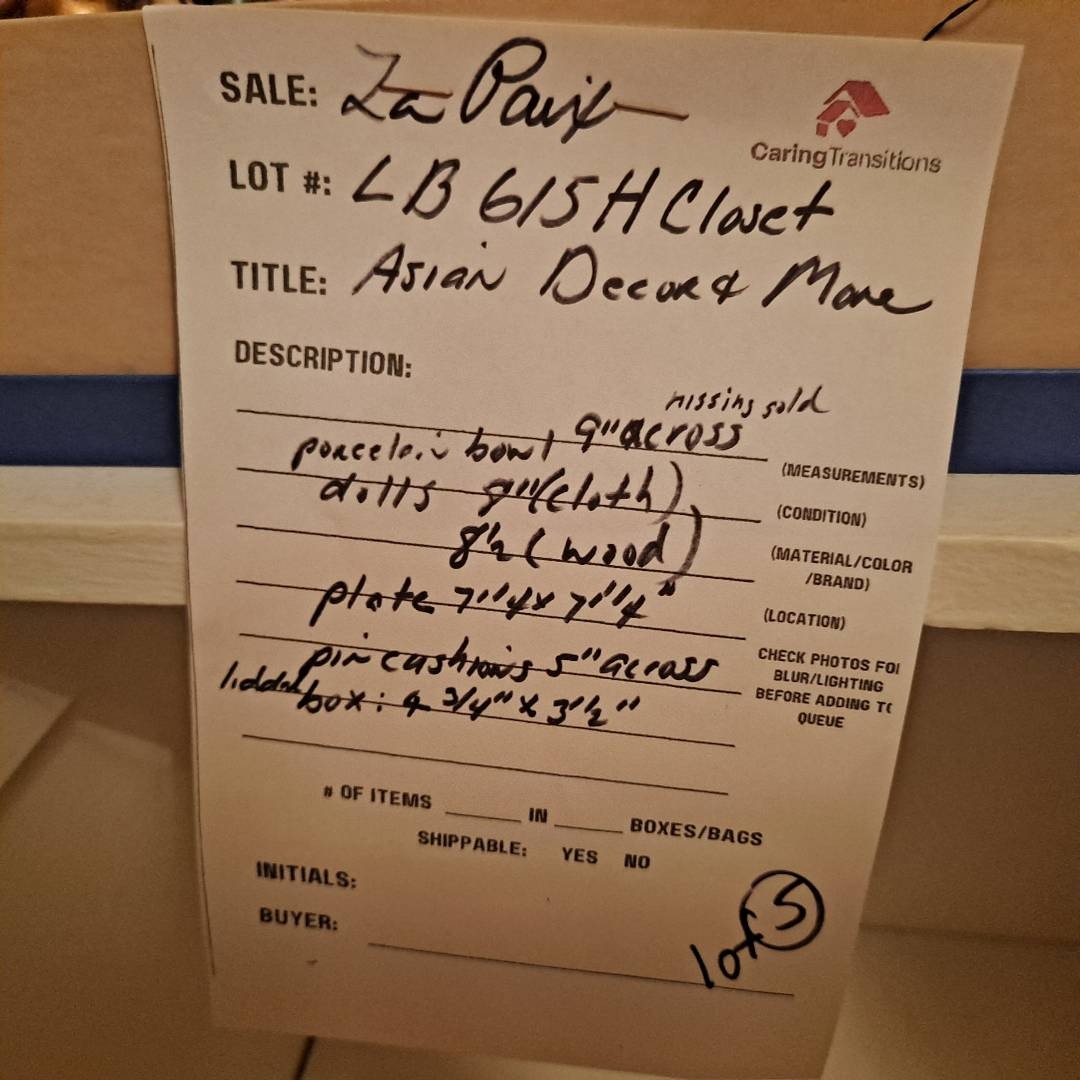 SALE: La Paix
CaringTransitions
LOT #: LB 615 H Closet
TITLE: Asian Decor & More
DESCRIPTION:
missing sold
porcelain bowl 9" across
(MEASUREMENTS)
dolls 9" (cloth)
(CONDITION)
8½ (wood)
(MATERIAL/COLOR
/BRAND)
plate 7"4 x 7"4"
(LOCATION)
pin cushions 5" across
CHECK PHOTOS FOR
BLUR/LIGHTING
BEFORE ADDING TO
QUEUE
lidded box: 4 3/4" x 3½"
# OF ITEMS IN BOXES/BAGS
SHIPPABLE: YES NO
INITIALS:
BUYER:
lot 5